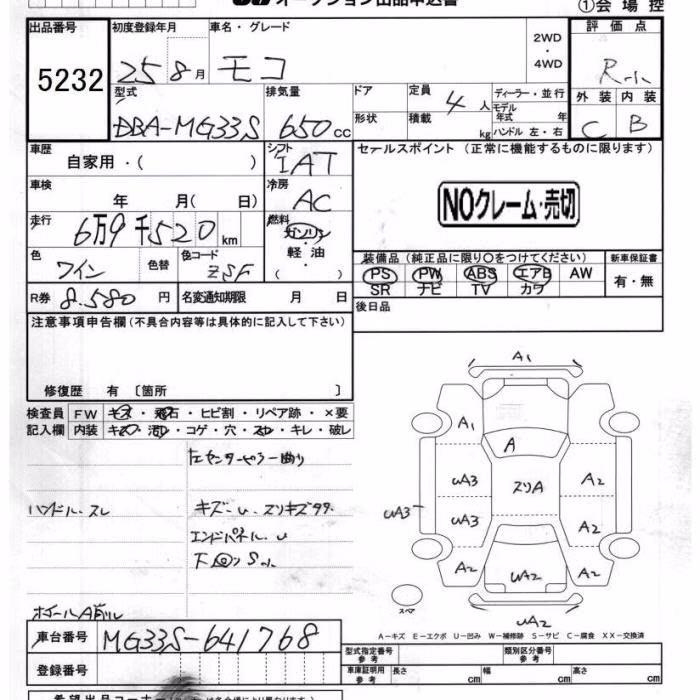 オークション出品申込書
①会場控
出品番号 初度登録年月 車名・グレード 2WD・4WD 評価点
5232 25 8月 モコ R-小
型式 排気量 ドア 定員 ディーラー・並行 外装 内装
DBA-MG33S 650cc 4人 モデル年式 年 C B
形状 積載 kg ハンドル 左・右
車歴 シフト セールスポイント (正常に機能するものに限ります)
自家用・( ) IAT
車検 冷房 NOクレーム・売切
年 月( 日) AC
走行 燃料
6万9千520km ガソリン・軽油・( )
色 色替 色コード 装備品 (純正品に限り○をつけてください) 新車保証書
ワイン ZSF PS PW ABS エアB AW 有・無
R券 8.580円 名変通知期限 月 日 SR ナビ TV カワ
後日品
注意事項申告欄 (不具合内容等は具体的に記入して下さい)
修復歴 有 〔箇所 〕
検査員 FW キズ・飛石・ヒビ割・リペア跡・×要
記入欄 内装 キズ・汚れ・コゲ・穴・スレ・キレ・破レ
ハンドル.スレ キズ-u. スリキズ多々
エンドパネル.u
下回りS小
ホイールA削レ
A1
A1
A
uA3 スリA A2
uA3 uA3 A2
A2 uA2 A2
スペア
uA2
A-キズ E-エクボ U-凹み W-補修跡 S-サビ C-腐食 XX-交換済
車台番号 MG33S-641768
登録番号
型式指定番号 参考 類別区分番号 参考
車庫証明用 参考 長さ cm 幅 cm 高さ cm
希望出品コーナー